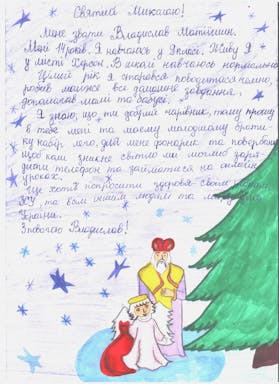 Святий Миколаю!
Мене звати Владислав
Мені 14 років. Я навчаюсь у 9 класі. Живу я
у місті Херсон. В школі навчаюсь нормально
Цілий рік я старався поводитися чемно,
робив майже всі домашнє завдання,
допомагав мамі та бабусі.
Я знаю, що ти добрий чарівник, тому прошу
в тебе мені та моєму молодшому брату
лего, дві мені фонарик та повербанк
коли зникне світло ми могли
телефон та займатися на онлайн
уроках.
Ще хотів попросити здоров'я своїй
та всім іншим людям та
України.
З повагою Владислав!